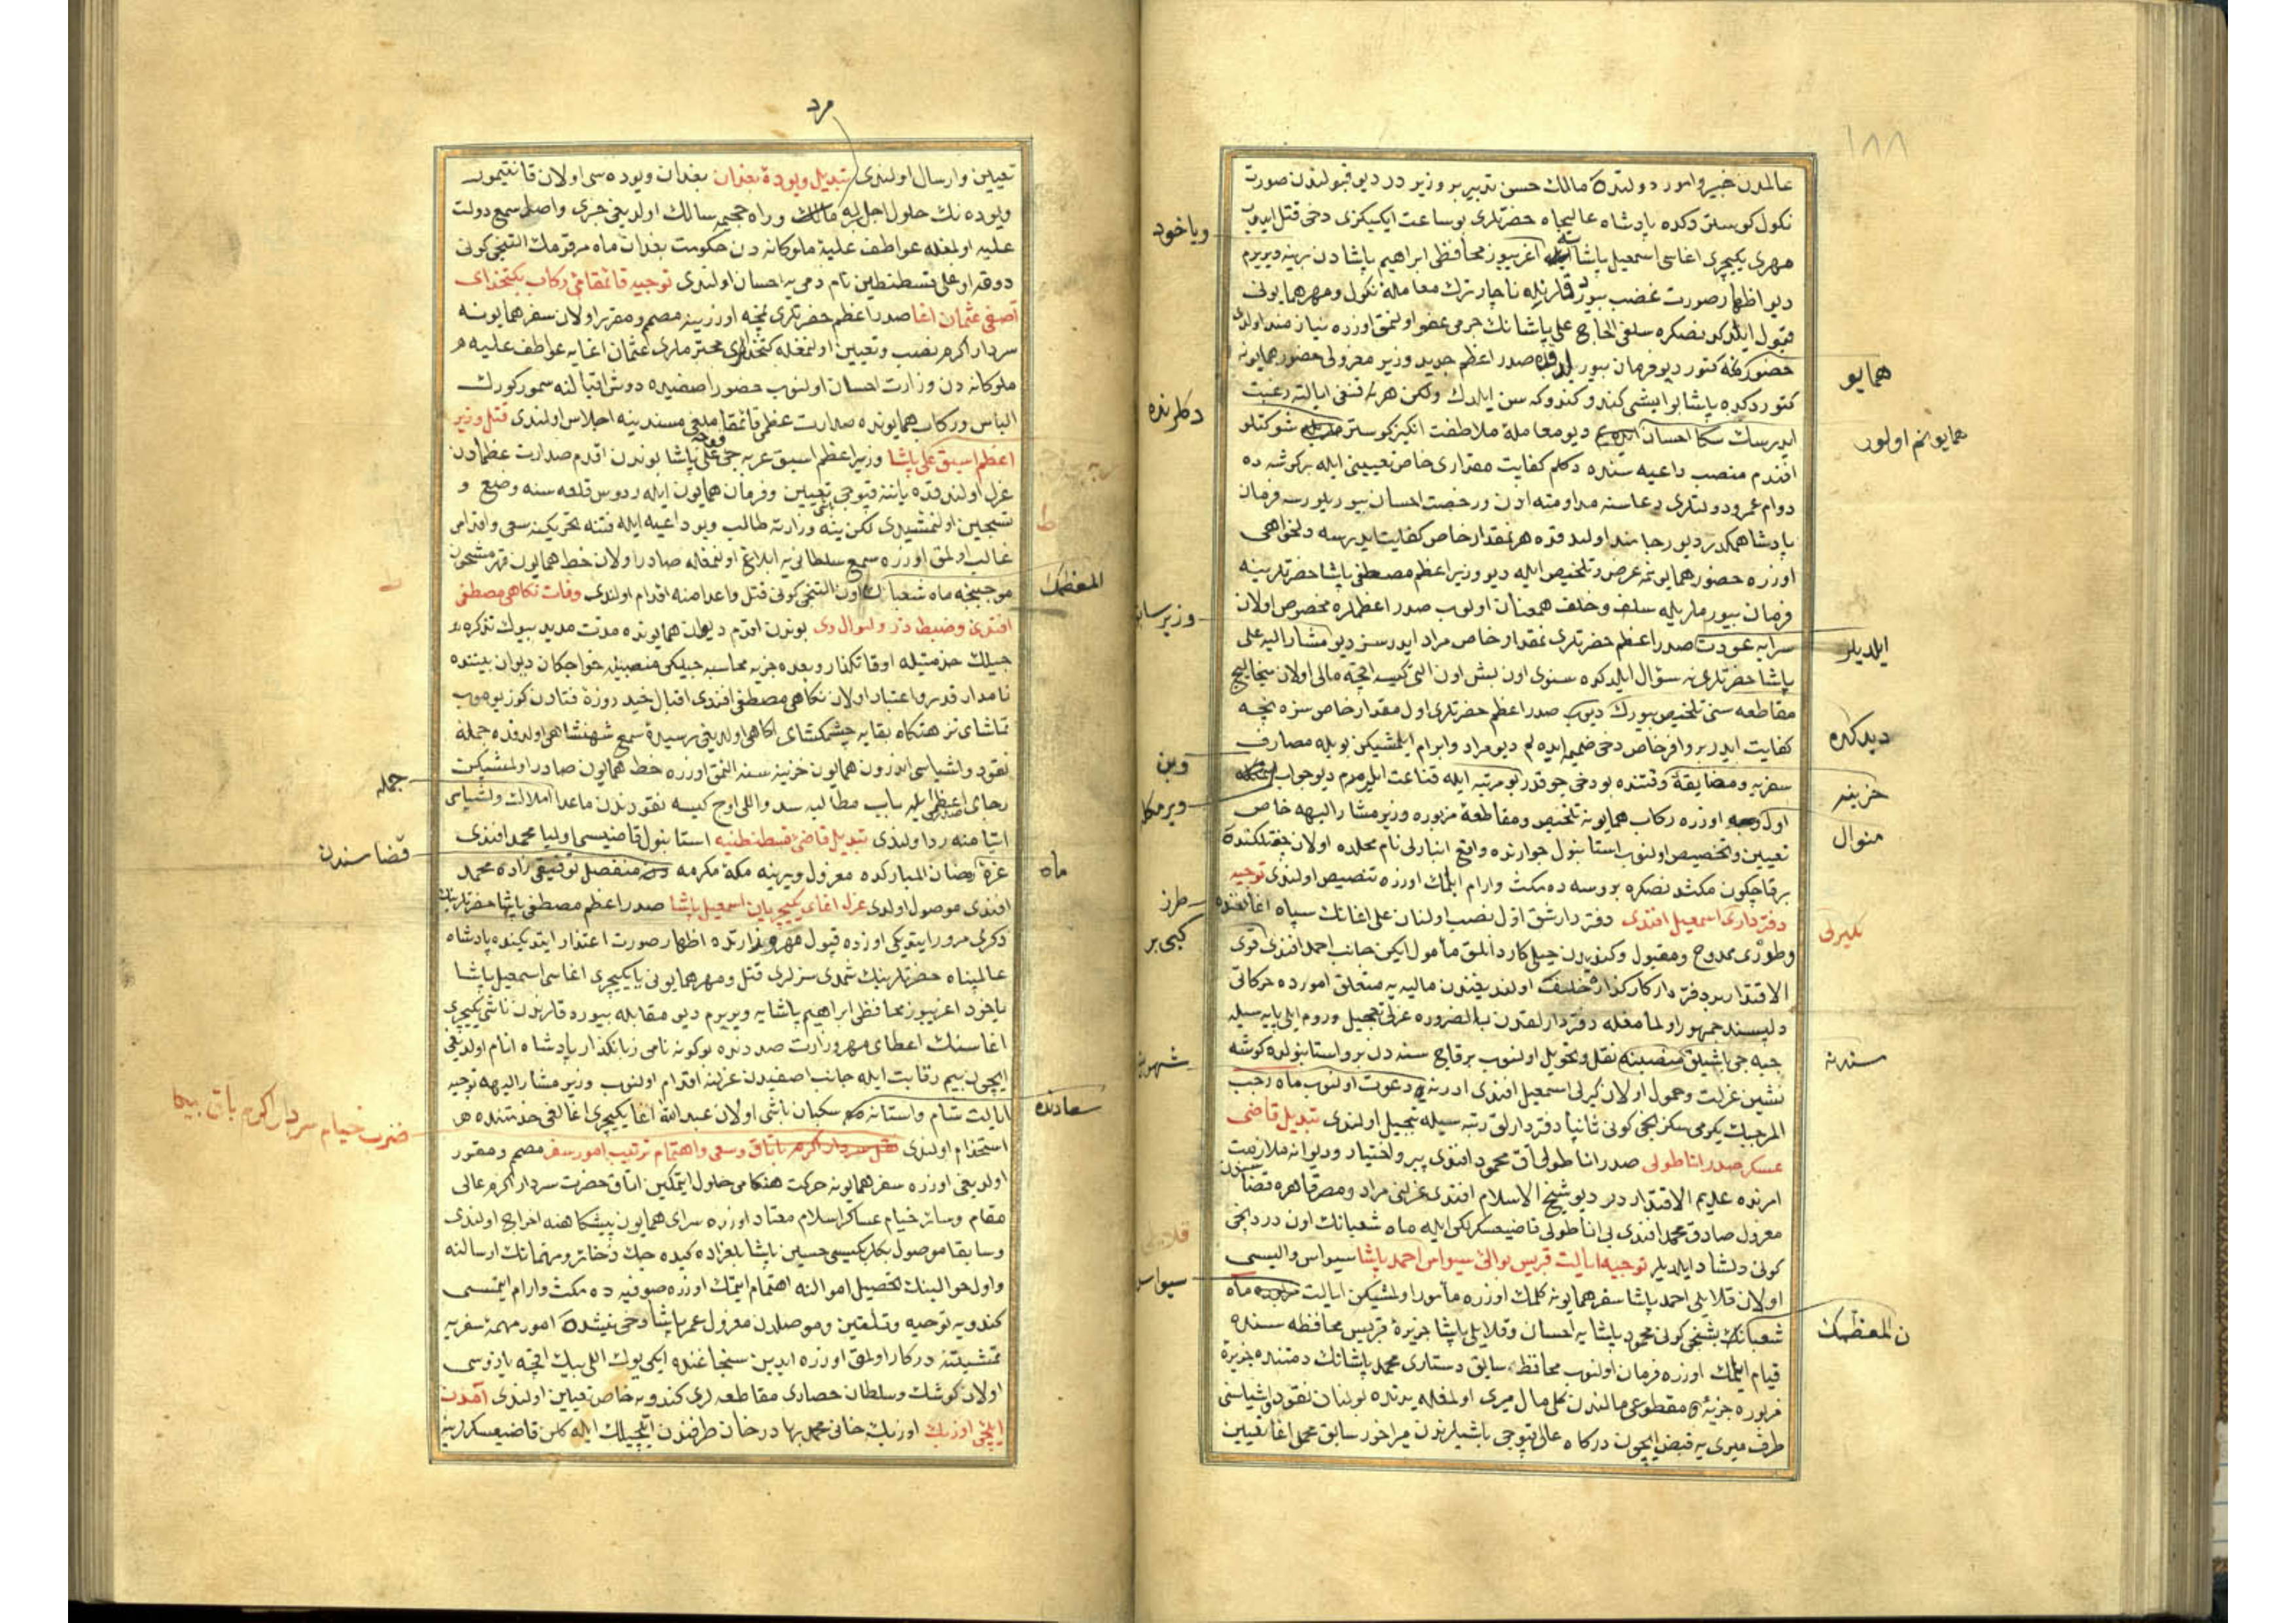 ١٨٨
عالمدن خبیر و امور دولتده مالك حسن تدبیر بر وزیر در دیو قبولندن صورت
نكول كوستردكده پادشاه عالیجاه حضرتلری بو ساعت ایكیكزی دخی قتل ایدوب
مهری یكیچری اغاسی اسمعیل پاشایه اغریبوز محافظی ابراهیم پاشادن برینه ویریرم
دیو اظهار صورت غضب بیوردقلرنده ناچار ترك معامله نكول و مهر همایونی
قبول ایلدكدنصكره سلفی الحاج علی پاشانك جرمی عفو اولنمق اوزره نیازمند اولدی
حضوركه كتور دیو فرمان بیورلدقده صدر اعظم جدید وزیر معزولی حضور همایونه
كتوردكده پاشا بو ایشی كندو كندوكه سن ایلدك ولكن هر نه قنغی ایالته رغبت
ایدرسك سكا احسان ایدەیم دیو معامله ملاطفت انكیز كوستر شوكتلو
افندم منصب داعیه سنده دكلم كفایت مقداری خاص تعیینی ایله بر كوشه ده
دوام عمر و دولتلری دعاسنه مداومته اذن و رخصت احسان بیوریلورسه فرمان
پادشاهمكدر دیو رجامند اولدقده هر نمقدار خاص كفایت ایدرسه دلخواهی
اوزره حضور همایونمه عرض و تلخیص ایله دیو وزیر اعظم مصطفی پاشا حضرتلرینه
فرمان بیورملریله سلف و خلف همعنان اولوب صدر اعظملره مخصوص اولان
سرایه عودت صدر اعظم حضرتلری نمقدار خاص مراد ایدرسز دیو مشار الیه علی
پاشا حضرتلرینه سؤال ایلدكده سنوی اون بش اون التی كیسه اقچه مالی اولان
مقاطعه سنی تلخیص بیورك دیوب صدر اعظم حضرتلری اول مقدار خاص سزه نیجه
كفایت ایدر بر وافر خاص دخی ضمیمه ایده لم دیو مراد و ابرام ایلمشیكن بویله مصارف
سفریه و مضایقه وقتنده بو دخی چوقدر بو مرتبه ایله قناعت ایلرم دیو جواب
اول اوزره ركاب همایونه تلخیص و مقاطعه مزبوره وزیر مشار الیهه خاص
تعیین و تخصیص اولنوب استانبول جوارنده واقع نام محلده اولان چفتلكنده
بر قاچ كون مكثدنصكره بروسه ده مكث و ارام ایلمك اوزره تنصیص اولندی توجیه
دفترداری اسمعیل افندی دفتردار شق اول نصب اولنان علی اغانك سپاه
و طوری ممدوح و مقبول و كندودن خیلی كاردانلق مأمول ایكن جانب احمد افندی قوی
الاقتدار بر دفتردار كاركذاره خلیفه اولدیغندن مالیه یه متعلق امورده حركاتی
دلپسند جمهور اولمامغله دفتردارلقدن بالضروره عزلی تعجیل و روم ایلی پایه سیله
جبه جی باشیلق منصبنه نقل و تحویل اولنوب بر قاچ سنه دن برو استانبولده كوشه
نشین عزلت و خمول اولان كیرلی اسمعیل افندی ادرنه یه دعوت اولنوب ماه رجب
المرجبك یكرمی سكزنجی كونی ثانیا دفتردارلق رتبه سیله تبجیل اولندی تبدیل قاضی
عسكر صدر اناطولی صدر اناطولی آق محمود افندی پیر و اختیار و دیوانه ملازمت
امرنده عدیم الاقتداردر دیو شیخ الاسلام افندی عزلنی مراد و مصر قاهره قضاسندن
معزول صادق محمد افندی یی اناطولی قاضیعسكرلكی ایله ماه شعبانك اون دردنجی
كونی دلشاد ایلدیلر توجیه ایالت قبریس بوالئ سیواس احمد پاشا سیواس والیسی
اولان قلایلی احمد پاشا سفر همایونه كلمك اوزره مأمور اولمشیكن ایالت مزبوره ماه
شعبانك بشنجی كونی محمود پاشایه احسان و قلایلی پاشا جزیره قبریس محافظه سنده
قیام ایلمك اوزره فرمان اولنوب محافظ سابق دستاری محمد پاشانك ذمتنده جزیره
مزبوره جزیه مقطوعی مالندن كلی مال میری اولمغله یدنده بولنان نقود و اشیاسنی
طرف میری یه قبض ایچون دركاه عالی قپوجی باشیلرندن میراخور سابق محمد اغا تعیین
ویاخود
دكلرنده
وزیر سابق
وین
ویرمكله
طرز
كبی بر
شهرینه
سیواس
همایو
همایونم اولور
ایلدیلر
دیدكده
خزینه
منوال
كیرلی
سنه
قلایلی
ن المعظمك
مرد
تعیین و ارسال اولندی تبدیل ویوده بغدان بغدان ویوده سی اولان قانتیمور
ویوده نك حلول اجل ایله و راه جحیمه سالك اولدیغی خبری واصل سمع دولت
علیه اولمغله عواطف علیه ملوكانه دن حكومت بغدان ماه مرقومك التنجی كونی
دوقه اوغلی قسطنطین نام ذمی یه احسان اولندی توجیه قائمقامئ ركاب بكتخدای
آصفی عثمان اغا صدر اعظم حضرتلری نیجه اوزرینه مصمم و مقرر اولان سفر همایونه
سردار اكرم نصب و تعیین اولنمغله كتخدالری محترملری عثمان اغایه عواطف علیه
ملوكانه دن وزارت احسان اولنوب حضور اصفیده دوش اقبالنه سمور كورك
الباس و ركاب همایونده صدارت عظمی قائمقاملغی مسندینه اجلاس اولندی قتل وزیر
اعظم اسبق علی پاشا وزیر اعظم اسبق عربه جی علی پاشا بوندن اقدم صدارت عظمادن
عزل اولندقده یاننه قپوجی تعیین و فرمان همایون ایله ردوس قلعه سنه وضع و
تسجین اولنمشیدی لكن ینه وزارته طالب و بو داعیه ایله فتنه تحریكینه سعی و اقدام
غالب اولمق اوزره سمع سلطانی یه ابلاغ اولنمغله صادر اولان خط همایون قهر مشحون
موجبنجه ماه شعبانك اون التنجی كونی قتل و اعدامنه اقدام اولندی وفات نكاهی مصطفی
افندی و ضبط در و اموال وی بوندن اقدم دیوان همایونده مدت مدید بیوك تذكره
جیلك خدمتیله اوقاتكذار و بعده جزیه محاسبه جیلكی منصبیله خواجكان دیوان بیننده
نامدار قدر و اعتبار اولان نكاهی مصطفی افندی اقبال چند روزه فنادن كوز یوموب
تماشای نزهتكاه بقایه چشمكشای اكاهی اولدیغی رسیده سمع شهنشاهی اولدقده جمله
نقود و اشیاسی اندرون همایون خزینه سنه النمق اوزره خط همایون صادر اولمشیكن
رجای صدر اعظمی ایله باب مطالبه سد و اللی اوچ كیسه نقودندن ماعدا املاك و اشیاسی
ایتامنه رد اولندی تبدیل قاضئ قسطنطنیه استانبول قاضیسی اولیا محمد افندی
غره رمضان المباركده معزول و یرینه مكه مكرمه دن منفصل توفیقی زاده محمد
افندی موصول اولدی عزل اغای یكیچریان اسمعیل پاشا صدر اعظم مصطفی پاشا حضرتلرینك
ذكری مرور ایتدیكی اوزره قبول مهر وزارتده اظهار صورت اعتذار ایتدیكنده پادشاه
عالمپناه حضرتلرینك شمدی سزلری قتل و مهر همایونی یا یكیچری اغاسی اسمعیل پاشا
یاخود اغریبوز محافظی ابراهیم پاشایه ویریرم دیو مقابله بیوردقلرندن ناشی یكیچری
اغاسنك اعطای مهر وزارت صددنده بو كونه نامی زبانكذار پادشاه انام اولدیغی
ایچون بیم رقابت ایله جانب اصفیدن عزلنه اقدام اولنوب وزیر مشار الیهه توجیه
ایالت شام و استانه سكبان باشی اولان عبد الله اغا یكیچری اغالغی خدمتنده
استخدام اولندی نقل سردار اكرم باتاق و سعی و اهتمام ترتیب امور سفر مصمم و مقرر
اولدیغی اوزره سفر همایونه حركت هنكامی حلول ایتمكین اتاق حضرت سردار اكرم عالی
مقام و سائر خیام عساكر اسلام معتاد اوزره سرای همایون پیشكاهنه اخراج اولندی
و سابقا موصول بكلربكیسی حسین پاشا بلغراده كیده جك ذخائر و مهماتك ارسالنه
و اول حوالینك تحصیل اموالنه اهتمام ایتمك اوزره صوفیه ده مكث و ارام ایتمسی
كندویه توصیه و تلقین و موصلدن معزول عمر پاشا دخی نیشده امور مهمه سفریه
تمشیتنه دركار اولمق اوزره ایدین سنجاغنده ایكی یوك اللی بیك اقچه یازوسی
اولان كوشك و سلطان حصاری مقاطعه لری كندویه خاص تعیین اولندی آمدن
ایلچئ اوزبك اوزبك خانی محمد بهادر خان طرفندن ایلچیلك ایله كلن قاضیعسكرلرینه
المعظمك
ماه
سعادتده
جمله
قضاسندن
ضرب خیام سردار اكرم باتاق